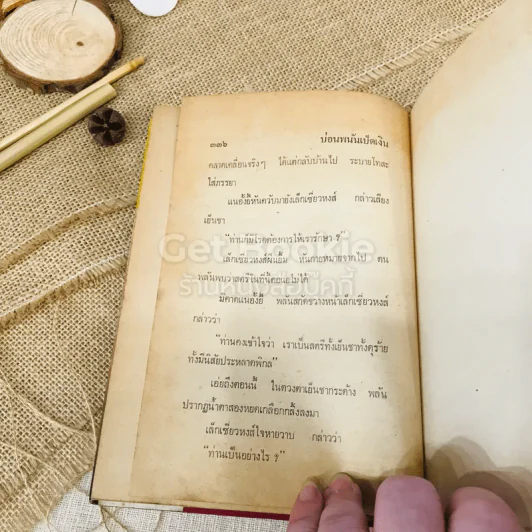 ๓๓๖ บ่อนพนันเบ็ดเงิน
คลาดเคลื่อนจริงๆ ได้แต่กลับบ้านไป ระบายโทสะ
ใส่ภรรยา
แนอั้งยี้หันควับมายังเล็กเซี่ยวหงส์ กล่าวเสียง
เย็นชา
"ท่านก็มีโรคต้องการให้เรารักษา ?"
เล็กเซี่ยวหงส์ฝืนยิ้ม หันกายหมายจากไป ตน
พลันพบว่าสตรีในที่นี้ตอแยไม่ได้
มิคาดแนอั้งยี้ พลันสกัดขวางหน้าเล็กเซี่ยวหงส์
กล่าวว่า
"ท่านคงเข้าใจว่า เราเป็นสตรีทั้งเย็นชาทั้งดุร้าย
ทั้งมีนิสัยประหลาดพิกล"
เอ่ยถึงตอนนี้ ในดวงตาเย็นชากระด้าง พลัน
ปรากฏน้ำตาสองหยดเกลือกกลิ้งลงมา
เล็กเซี่ยวหงส์ใจหายวาบ กล่าวว่า
"ท่านเป็นอย่างไร ?"
Get Bookie
ร้านหนังสือบุ๊คกี้